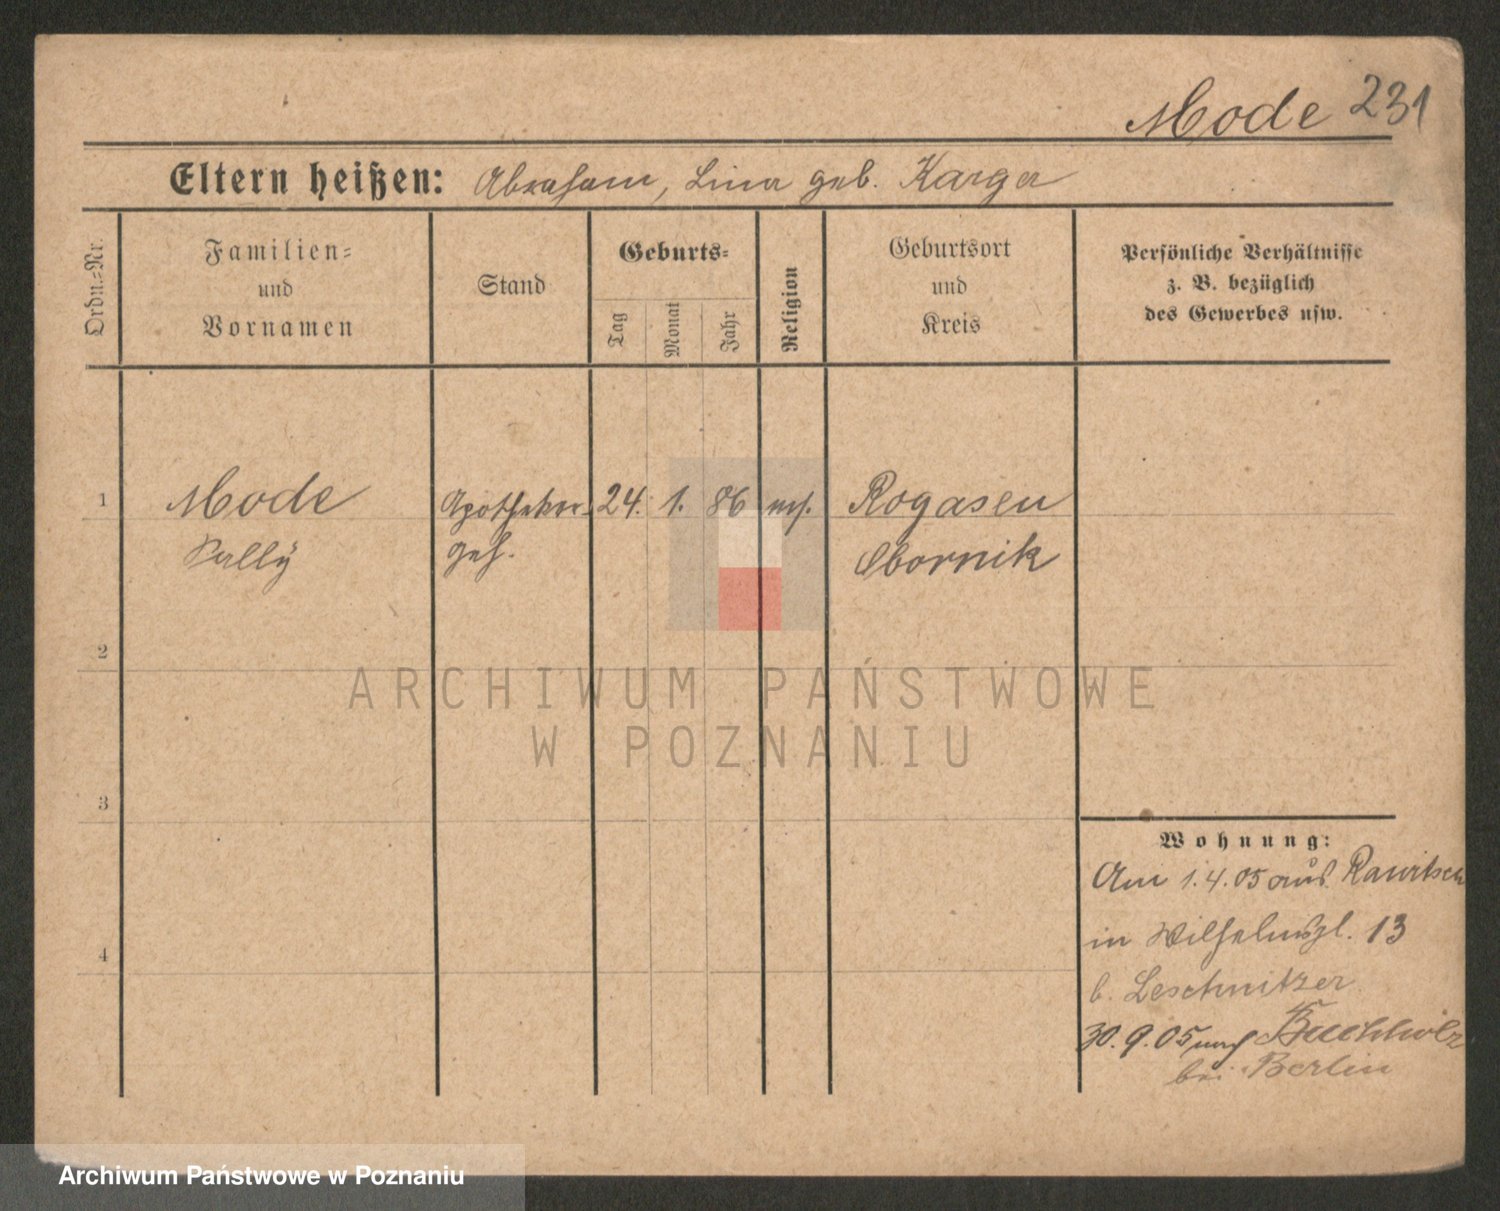 Mode 231
Eltern heißen: Abraham, Lina geb. Karger
Ordn.=Nr.
Familien=
und
Vornamen
Stand
Geburts=
Tag
Monat
Jahr
Religion
Geburtsort
und
Kreis
Persönliche Verhältnisse
z. B. bezüglich
des Gewerbes usw.
1 Mode Apotheker- 24. 1. 86 mos. Rogasen
Sally geh. Obornik
2
3
4
Wohnung:
Am 1.4.05 aus Rawitsch
in Wilhelmspl. 13
b. Leschnitzer
30.9.05 nach Buchholz
bei Berlin
ARCHIWUM PAŃSTWOWE
W POZNANIU
Archiwum Państwowe w Poznaniu